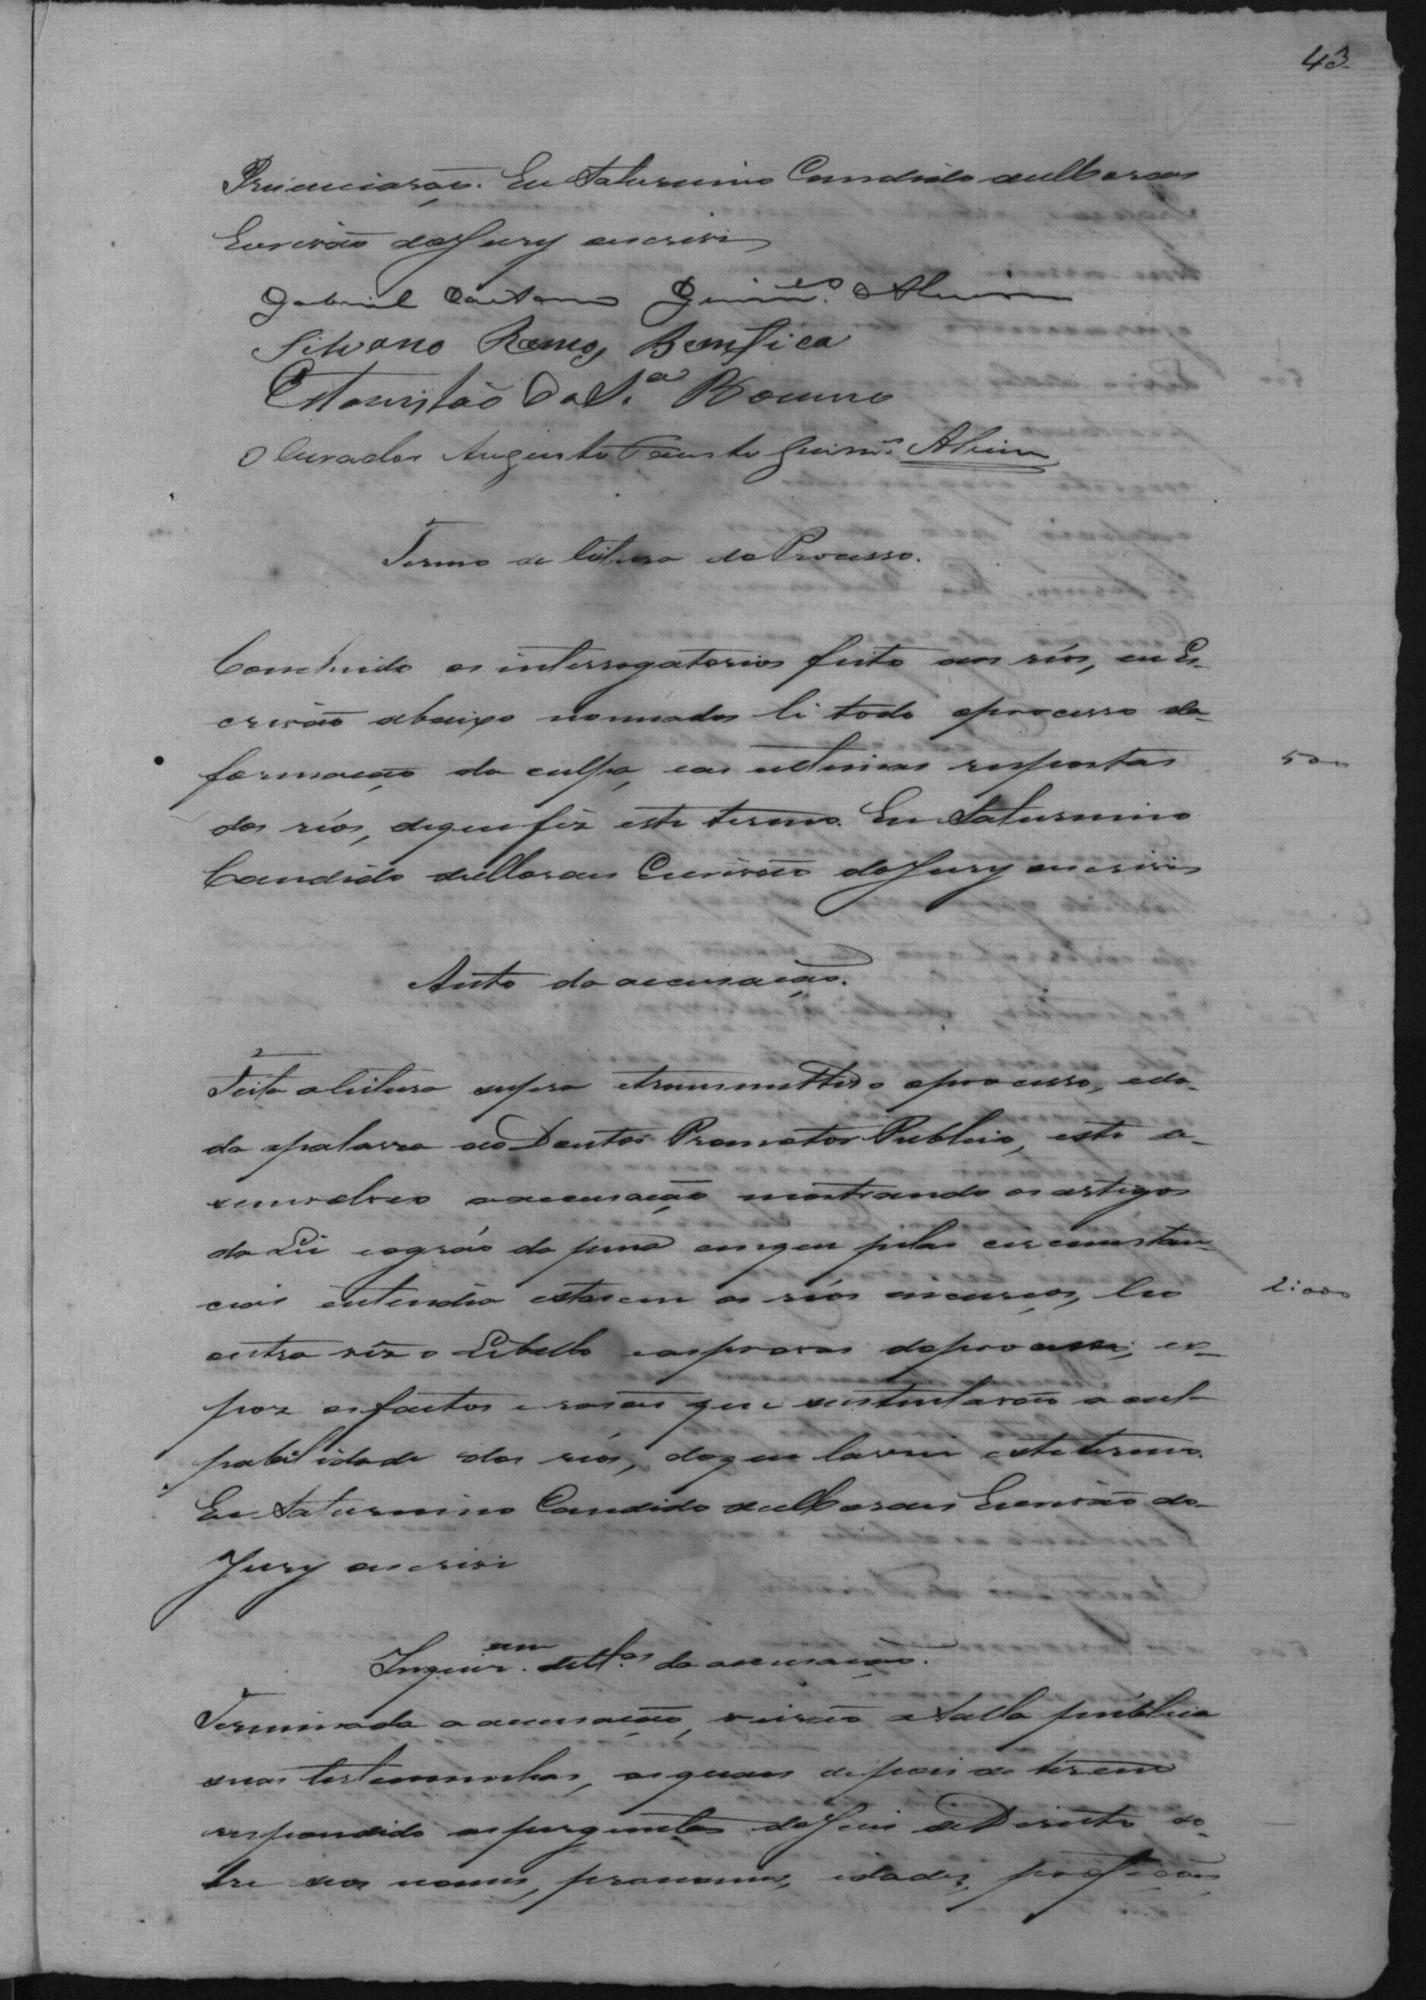 43
Prinunciação. Eu Saturnino Candido de Moraes
Escrivão do Jury escrivi
Gabriel Caetano Guim.es Alvim
Silvano Ramos Bemfica
Estanisláo da S.a Bueno
O Curador Augusto Fausto Guim.es Alvim
Termo de litura do Processo.
Concluido os interrogatorios feito aos réos, eu Es-
crivão abaixo nomiado li todo o processo da
formação da culpa, e as ultimas respostas
500
dos réos, do que fiz este termo. Eu Saturnino
Candido de Moraes Escrivão do Jury escrivi
Auto da accusação.
Feita a leitura supra e transmettido o processo, e da-
da a palavra ao Doutor Promotor Publico, este de-
senvolveo a accusação mostrando os artigos
da Lei e o gráo da pena em que pelas circunstan-
cias entendia estarem os réos incursos, leu
2:000
outra vez o Libello e as provas do processo, ex-
poz os factos e rasões que sustentavão a cul-
pabilidade dos réos, do que lavrei este termo.
Eu Saturnino Candido de Moraes Escrivão do
Jury escrivi
Inquir.am de tt.as da accusação.
Terminada a accusação, vierão a Salla publica
suas testemunhas, as quaes depois de terem
respondido as perguntas do Juis de Direito so-
bre seos nomes, pronomes, idades, profições,